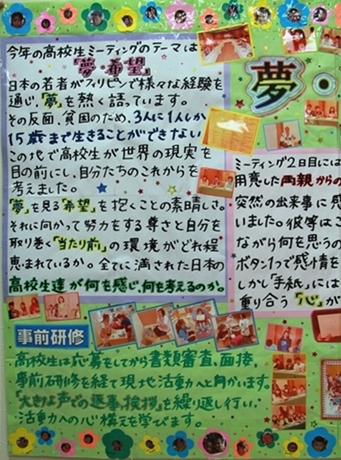 今年の高校生ミーティングのテーマは
「夢・希望」
日本の若者がフィリピンで様々な経験を
通じ、「夢」を熱く語っています。
その反面、貧困のため、3人に1人しか
15歳まで生きることができない
この地で高校生が世界の現実を
目の前にし、自分たちのこれからを
考えました。
「夢」を見る「希望」を抱くことの素晴しさ。
それに向かって努力をする尊さと自分を
取り巻く「当たり前」の環境がどれ程
恵まれているか。全てに満された日本の
高校生達が何を感じ、何を考えるのか。
事前研修
高校生は応募をしてから書類審査、面接
事前研修を経て現地活動へと向かいます。
「大きな声での返事、挨拶」を繰り返し行い、
活動への心構えを学びます。
夢・
ミーティング2日目には
用意した両親からの
突然の出来事に感
いました。彼等はこ
ながら何を思うの
ボタン1つで感情を
しかし「手紙」には
重り合う「心」が